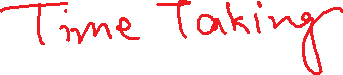 Time Taking